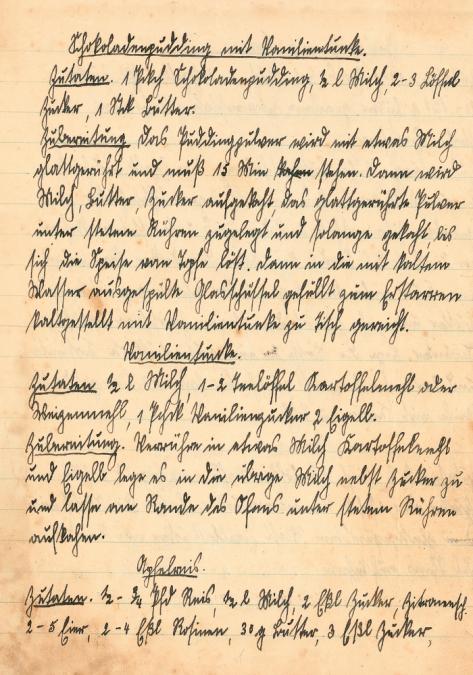 Schokoladenpudding mit Vanilientunke.
Zutaten. 1 Pckch Schokoladenpudding, ½ l Milch, 2-3 Löffel
Zucker, 1 Stk Butter.
Zubereitung Das Puddingpulver wird mit etwas Milch
glattgerührt und muß 15 Min stehen. Dann wird
Milch, Butter, Zucker aufgekocht, das glattgerührte Pulver
unter stetem Rühren zugelegt und solange gekocht, bis
sich die Speise vom Topfe löst. Dann in die mit kaltem
Wasser ausgespülte Glasschüssel gefüllt zum Erstarren
kaltgestellt mit Vanilientunke zu Tisch gereicht.
Vanilientunke.
Zutaten ½ l Milch, 1-2 Teelöffel Kartoffelmehl oder
Weizenmehl, 1 Pchk Vanilienzucker 2 Eigelb.
Zubereitung. Verrühre in etwas Milch Kartoffelmehl
und Eigelb lege es in die übrige Milch nebst Zucker zu
und lasse am Rande des Ofens unter stetem Rühren
aufkochen.
Apfelreis.
Zutaten. ½ - ¾ Pfd Reis, ½ l Milch, 2 Eßl Zucker, Zitronensch.
2-5 Eier, 2-4 Eßl Rosinen, 30 g Butter, 3 Eßl Zucker,